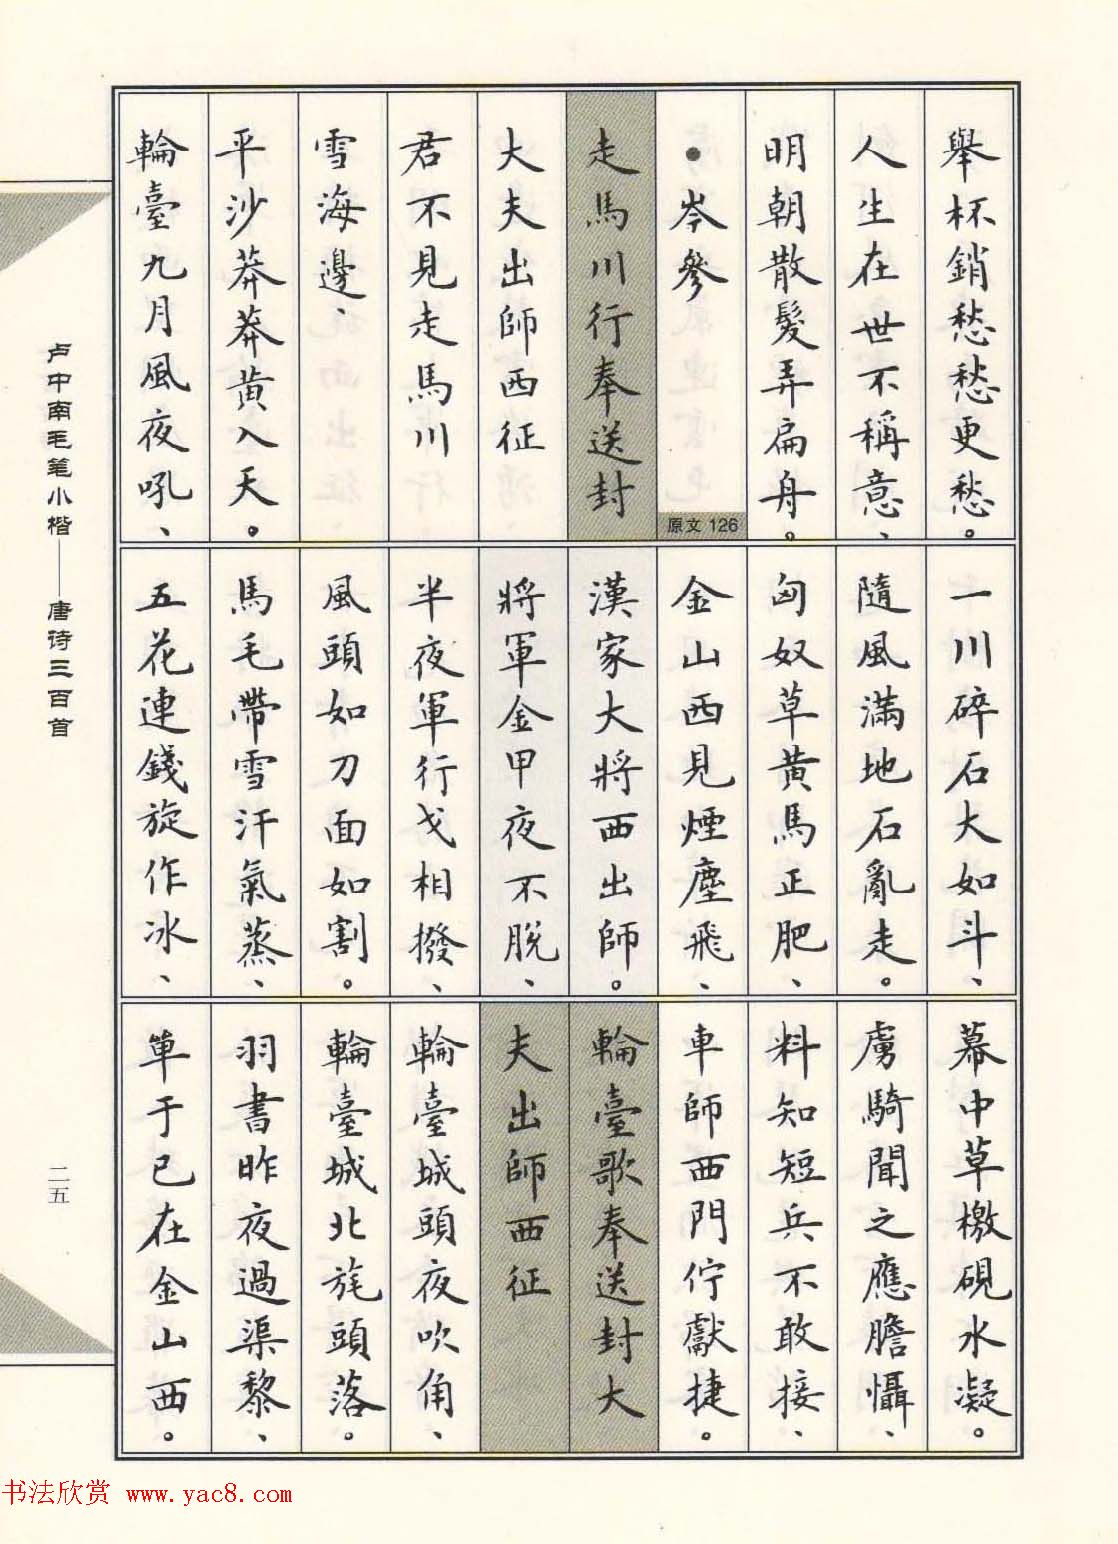 舉杯銷愁愁更愁。
人生在世不稱意、
明朝散髮弄扁舟。
●岑參
原文 126
走馬川行奉送封
大夫出師西征
君不見走馬川
雪海邊、
平沙莽莽黃入天。
輪臺九月風夜吼、
一川碎石大如斗、
隨風滿地石亂走。
匈奴草黃馬正肥、
金山西見煙塵飛、
漢家大將西出師。
將軍金甲夜不脫、
半夜軍行戈相撥、
風頭如刀面如割。
馬毛帶雪汗氣蒸、
五花連錢旋作冰、
幕中草檄硯水凝。
虜騎聞之應膽懾、
料知短兵不敢接、
車師西門佇獻捷。
輪臺歌奉送封大
夫出師西征
輪臺城頭夜吹角、
輪臺城北旄頭落。
羽書昨夜過渠黎、
單于已在金山西。
卢中南毛笔小楷——唐诗三百首
二五
书法欣赏 www.yac8.com